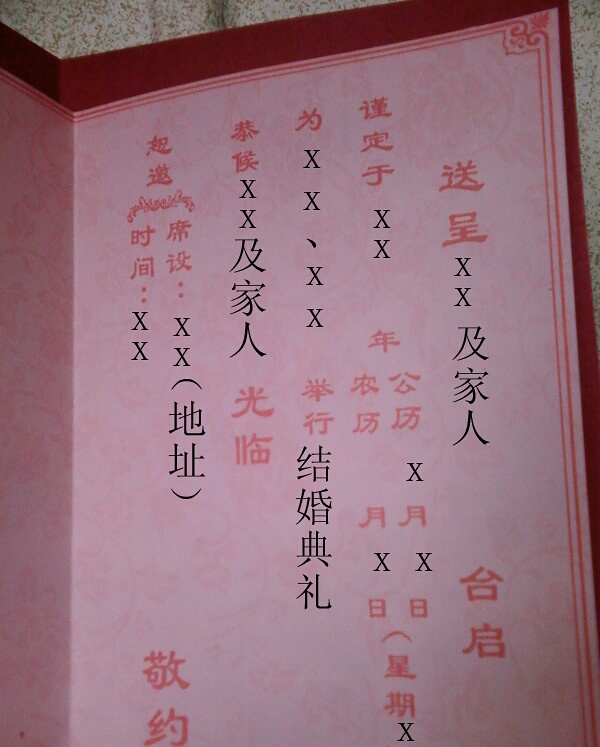 送呈 XX 及家人 台启
谨定于 XX 年 公历 X 月 X 日（星期 X
农历 月 X 日
为 X X、X X 举行 结婚典礼
恭候 XX 及家人 光临
席设：XX（地址）
时间：XX
恕邀
敬约